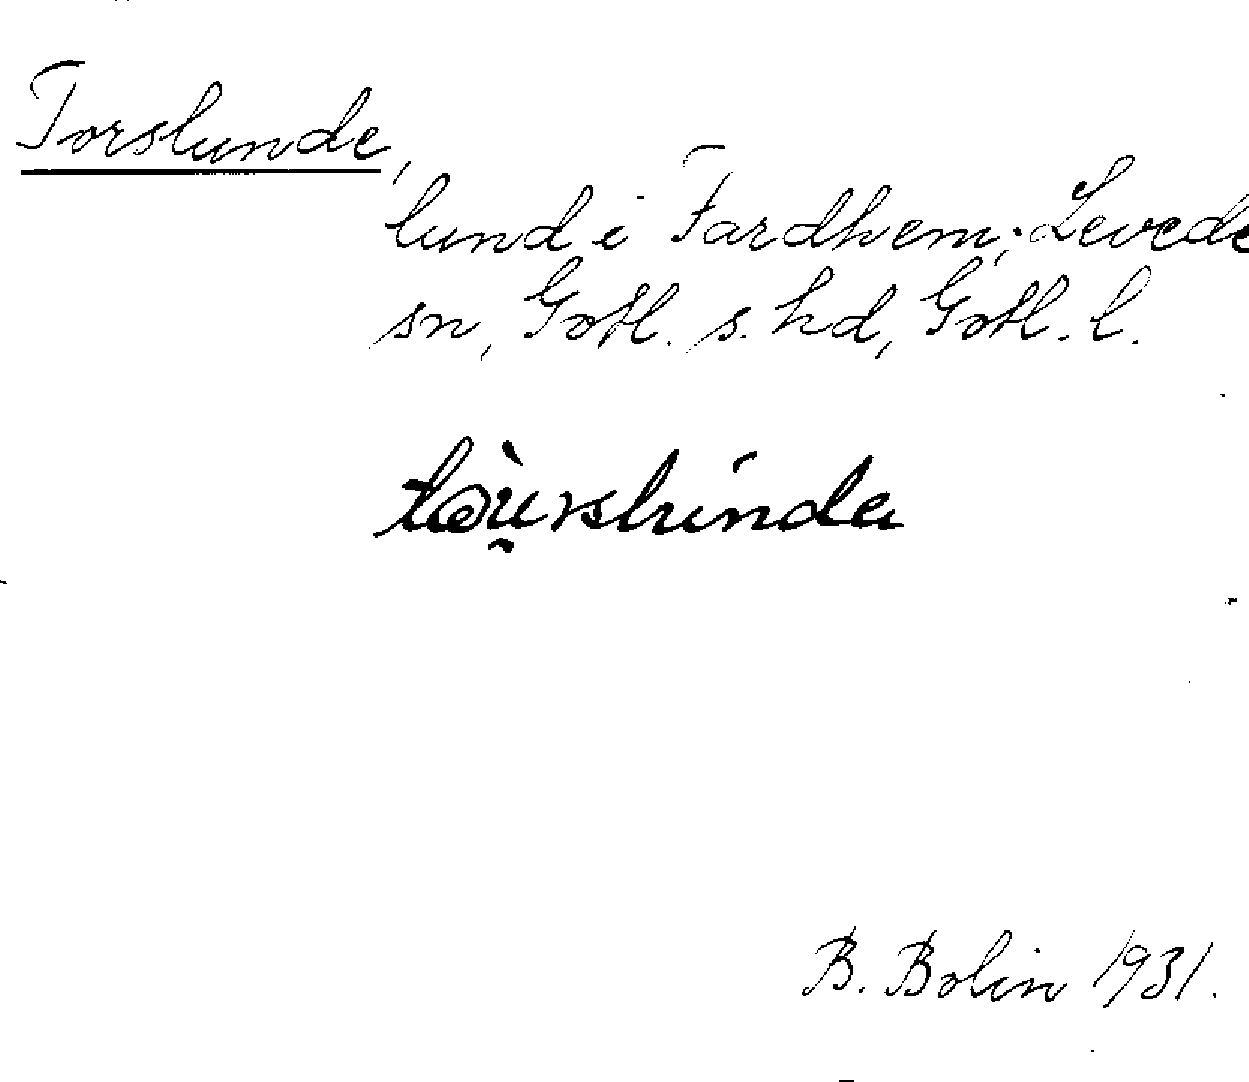 Torslunde,
lund i Fardhem, Levede
sn, Gotl. s. hd, Gotl. l.
B. Bolin 1931.